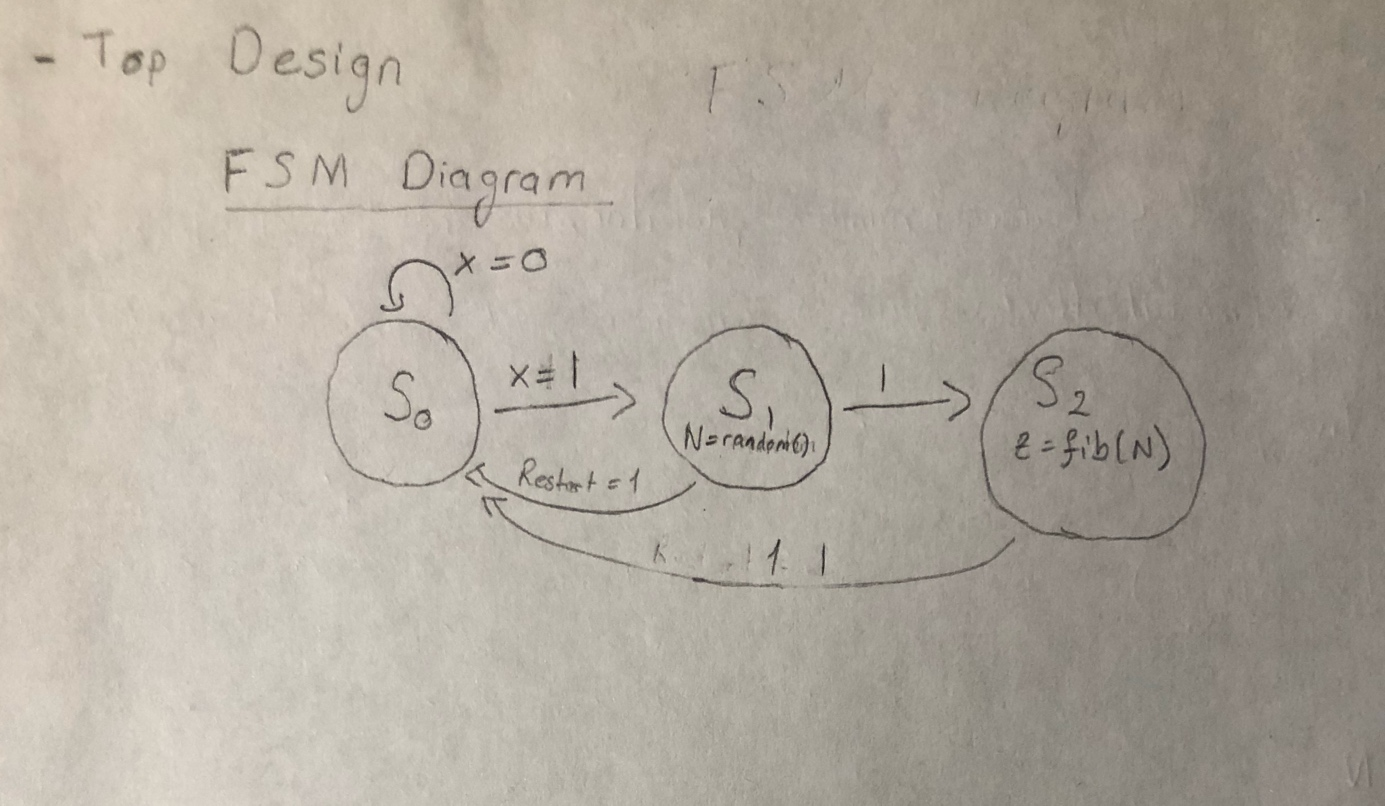 - Top Design
FSM Diagram
x = 0
S₀
x = 1
S₁
N = random();
1
S₂
z = fib(N)
Restart = 1
1